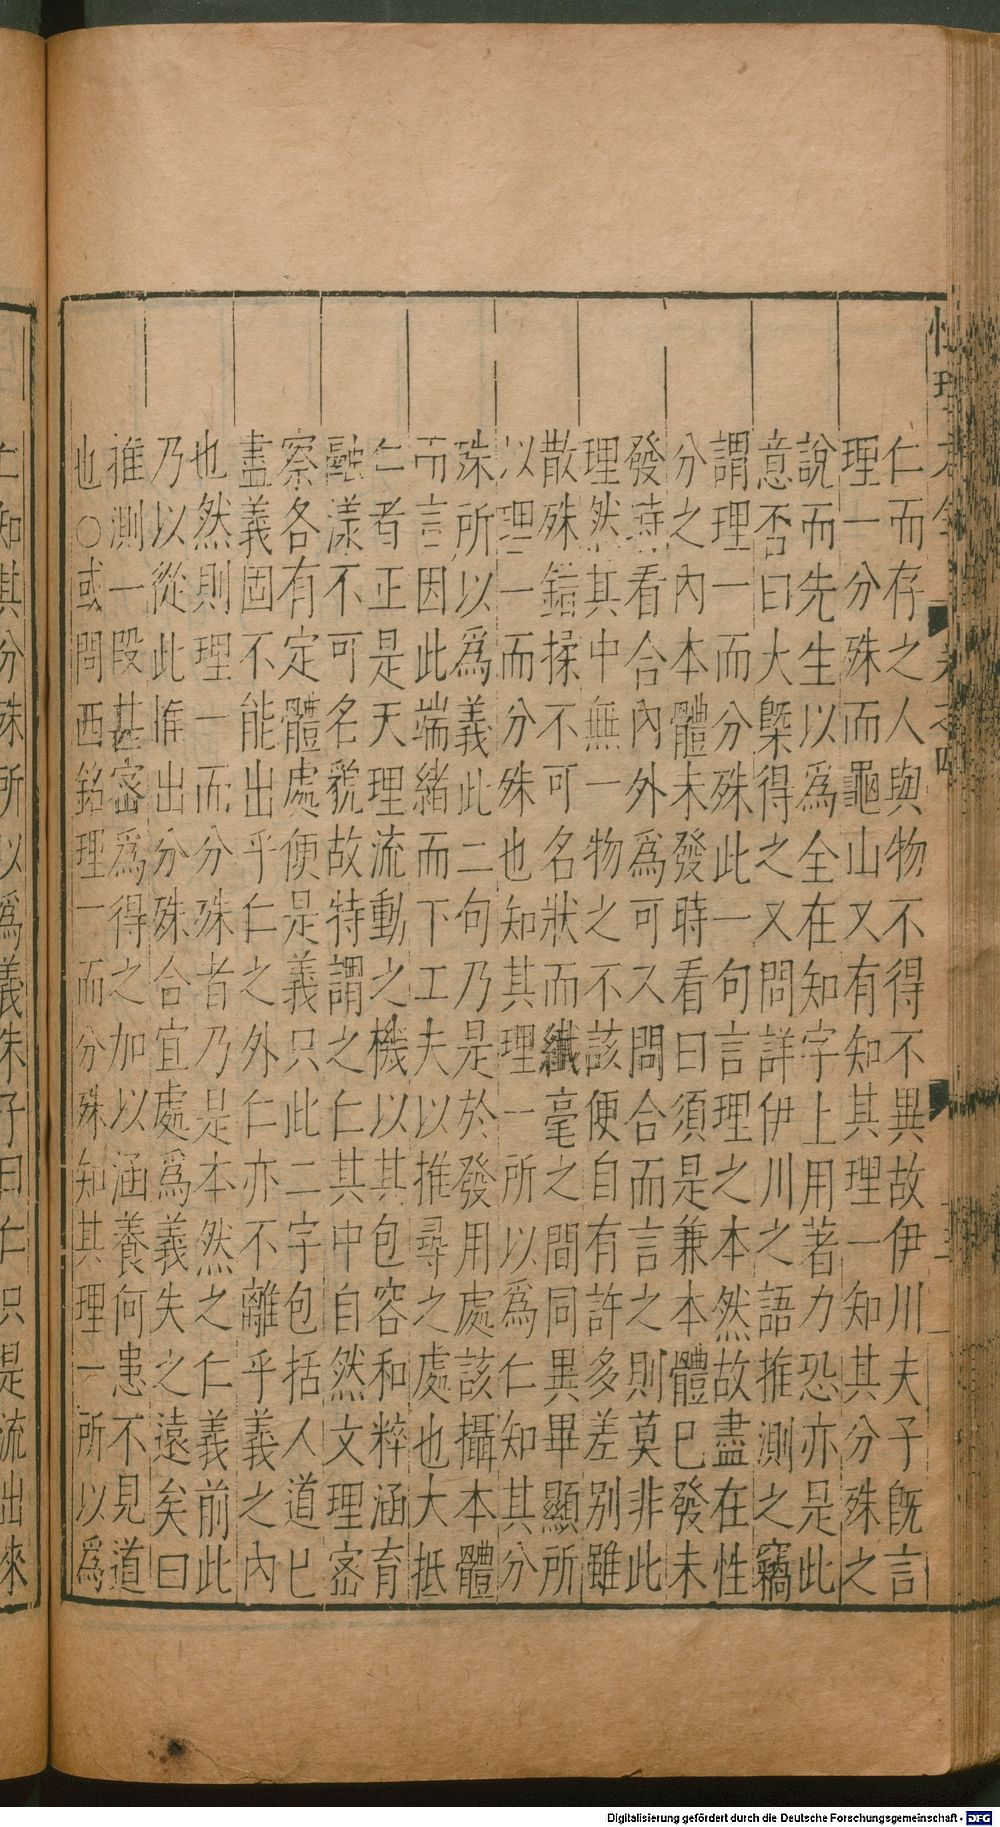 仁而存之人與物不得不異故伊川夫子旣言
理一分殊而龜山又有知其理一知其分殊之
說而先生以爲全在知字上用著力恐亦是此
意否曰大槩得之又問詳伊川之語推測之竊
謂理一而分殊此一句言理之本然故盡在性
分之內本體未發時看曰須是兼本體已發未
發時看合內外爲可又問合而言之則莫非此
理然其中無一物之不該便自有許多差别雖
散殊錯揉不可名狀而纖毫之間同異畢顯所
以理一而分殊也知其理一所以爲仁知其分
殊所以爲義此二句乃是於發用處該攝本體
而言因此端緒而下工夫以推尋之處也大抵
仁者正是天理流動之機以其包容和粹涵育
融漾不可名貌故特謂之仁其中自然文理宻
察各有定體處便是義只此二字包括人道已
盡義固不能出乎仁之外仁亦不離乎義之內
也然則理一而分殊者乃是本然之仁義前此
乃以從此推出分殊合宜處爲義失之遠矣曰
推測一段甚宻爲得之加以涵養何患不見道
也○或問西銘理一而分殊知其理一所以爲
仁知其分殊所以爲義朱子曰仁只是流出來
Digitalisierung gefördert durch die Deutsche Forschungsgemeinschaft - DFG